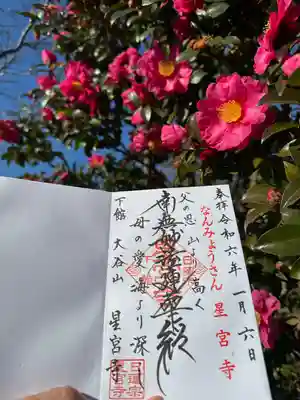 奉拝 令和六年一月六日
なんみょうさん 星宮寺
父の恩 山より高く
南無妙法蓮華経
母の愛 海より深し
下館 大谷山 星宮寺